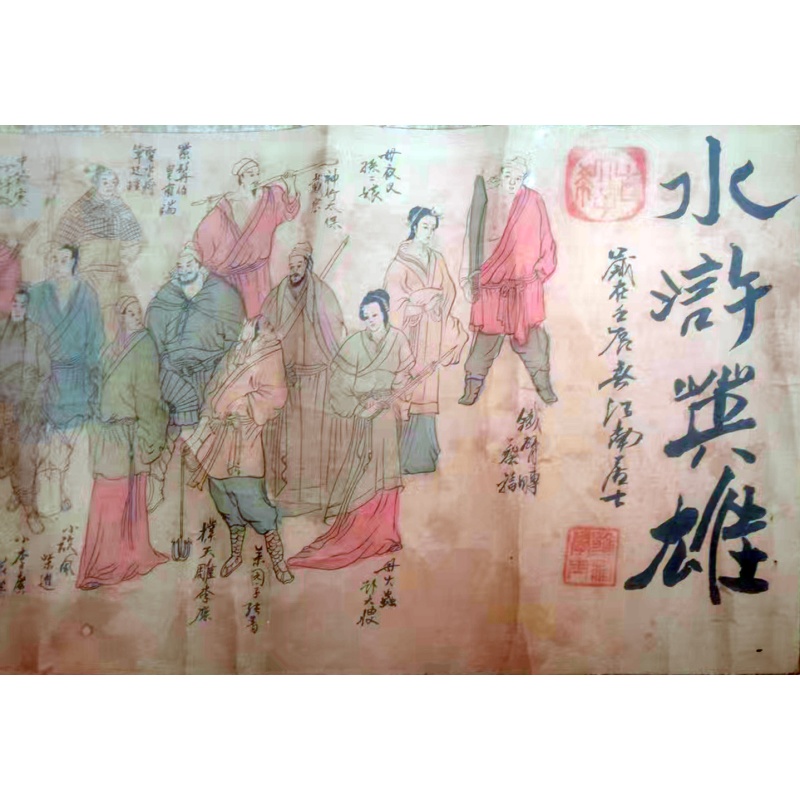 水滸英雄
歲在壬辰春江南居士
鐵臂膊
蔡福
母夜叉
孫二娘
母大蟲
大嫂
神行太保
戴宗
菜園子張青
撲天雕李應
紫髯伯
皇甫端
聖水將
單廷珪
小旋風
柴進
小李廣